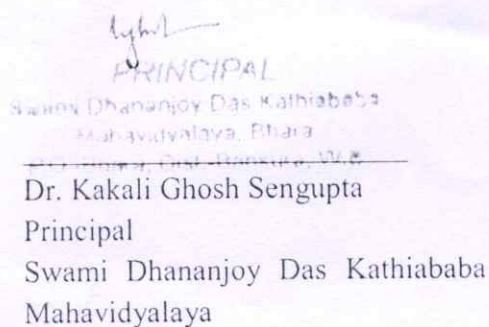 PRINCIPAL
Swami Dhananjoy Das Kathiababa
Mahavidyalaya, Bhara
Dist.-Bankura, W.B.
Dr. Kakali Ghosh Sengupta
Principal
Swami Dhananjoy Das Kathiababa
Mahavidyalaya